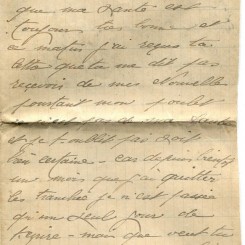 que ma santé est
toujours très bonne et
ce matin j'ai reçus ta
lettre que tu me dit pas
recevoir de mes nouvelles
pourtant mon poulet
ce n'est pas de ma faute
et je t'oublit pas soit
bien certaine - car depuis bientot
un mois que j'ai quitter
les tranches je n'est passer
qu'un seul jour de
t'écrire - mais que veut tu